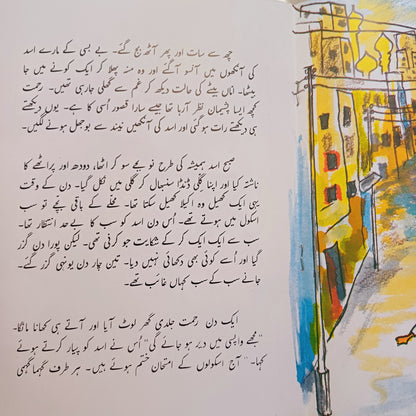 چھ سے سات اور پھر آٹھ بج گئے۔ بے بسی کے مارے اسد
کی آنکھوں میں آنسو آ گئے اور وہ منہ پھلا کر ایک کونے میں جا
بیٹھا۔ اماں بیٹے کی حالت دیکھ کر غم سے گھلی جا رہی تھیں۔ رحمت
کچھ ایسا پشیمان نظر آ رہا تھا جیسے سارا قصور اُسی کا ہے۔ یوں دیکھتے
ہی دیکھتے رات ہو گئی اور اسد کی آنکھیں نیند سے بوجھل ہونے لگیں۔
صبح اسد ہمیشہ کی طرح نو بجے سو کر اٹھا، دودھ اور پراٹھے کا
ناشتہ کیا اور اپنا گلی ڈنڈا سنبھال کر گلی میں نکل گیا۔ دن کے وقت
یہی ایک کھیل وہ اکیلا کھیل سکتا تھا۔ محلے کے باقی بچے تو سب
اسکول میں ہوتے تھے۔ اُس دن اسد کو سب کا بے حد انتظار تھا۔
سب سے ایک ایک کر کے شکایت جو کرنی تھی۔ لیکن پورا دن گزر
گیا اور اُسے کوئی بھی دکھائی نہیں دیا۔ تین چار دن یونہی گزر گئے۔
جانے سب کے سب کہاں غائب تھے۔
ایک دن رحمت جلدی گھر لوٹ آیا اور آتے ہی کھانا مانگا۔
"مجھے واپسی میں دیر ہو جائے گی" اُس نے اسد کو پیار کرتے ہوئے
کہا۔ "آج اسکولوں کے امتحان ختم ہوئے ہیں۔ ہر طرف گہما گہمی